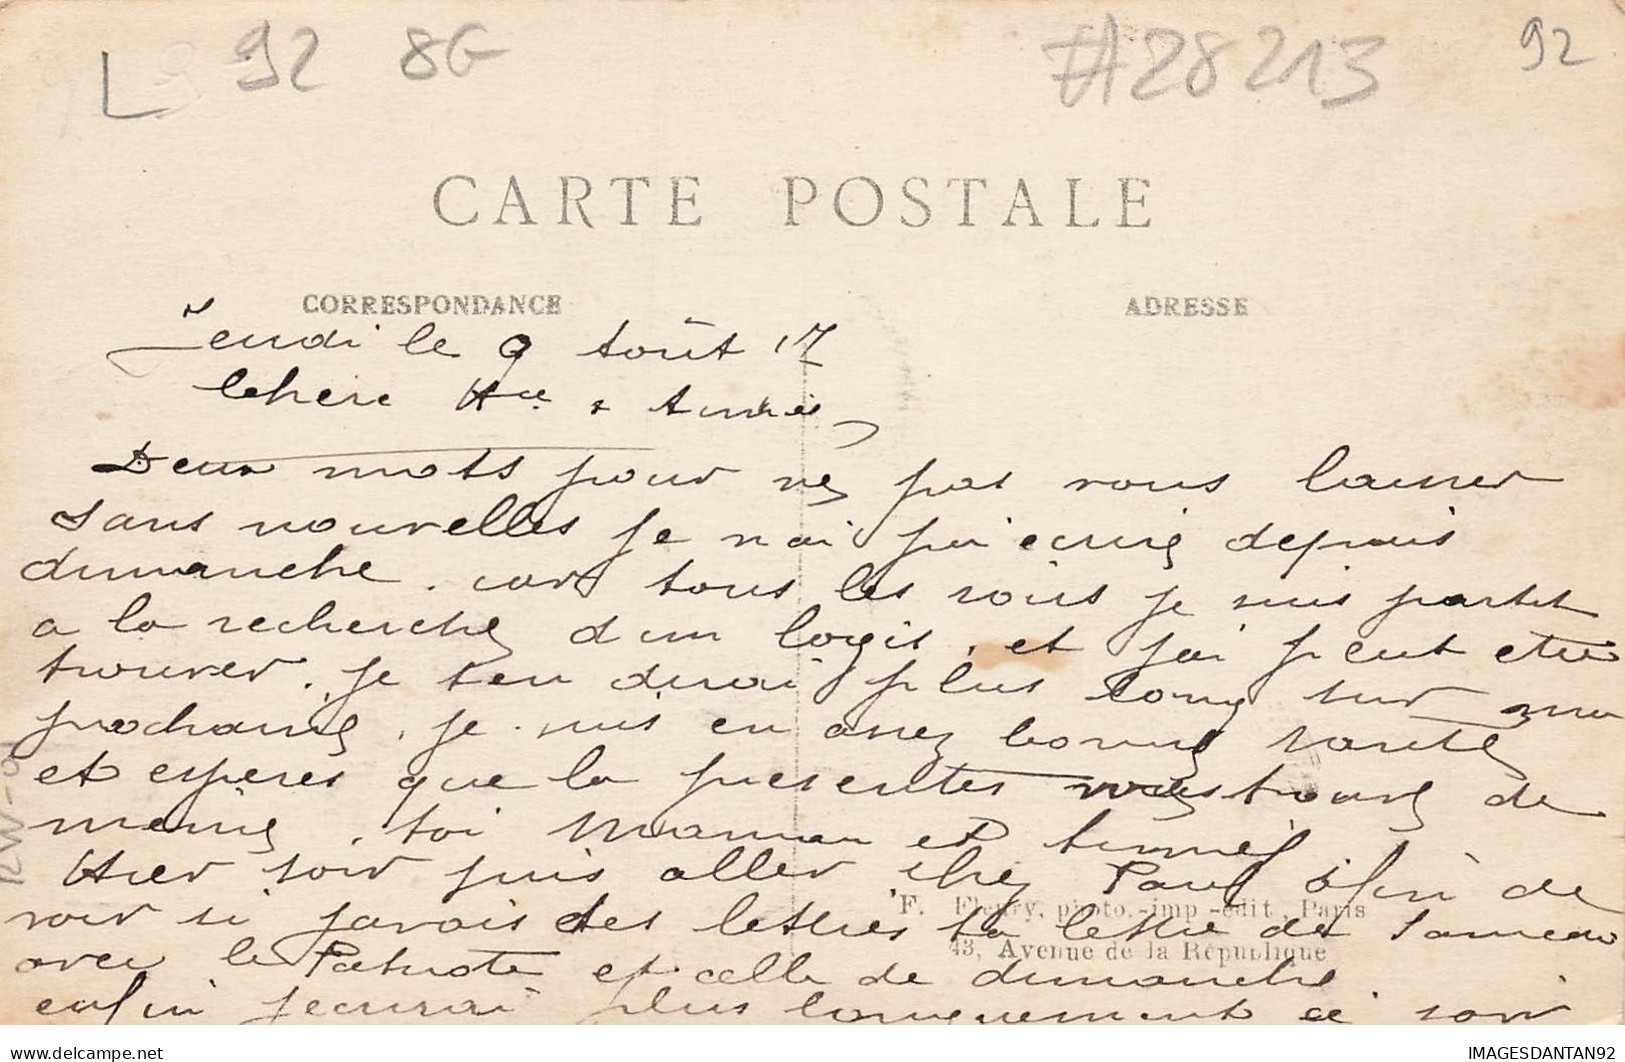 92 8G #28213 92
CARTE POSTALE
CORRESPONDANCE ADRESSE
Jeudi le 9 Aôut 17
Chère
Deux mots pour ne pas vous laisser
sans nouvelles je n'ai pu écrire depuis
dimanche. car tous les soirs je suis
a la recherche d'un logis. et j'ai peut etre
trouver. je t'en dirai plus long sur ma
prochaine. je suis en assez bonne santé
et esperes que la presentes vous trouve de
meme. toi Maman et
Hier soir suis aller chez Paul afin de
voir si j'avais des lettres ta lettre de Samedi
avec le Patriote et celle de dimanche
enfin j'ecrirai plus longuement ce soir
F. Fleury, photo.-imp-édit, Paris
43, Avenue de la République
IMAGESDANTAN92
delcampe.net